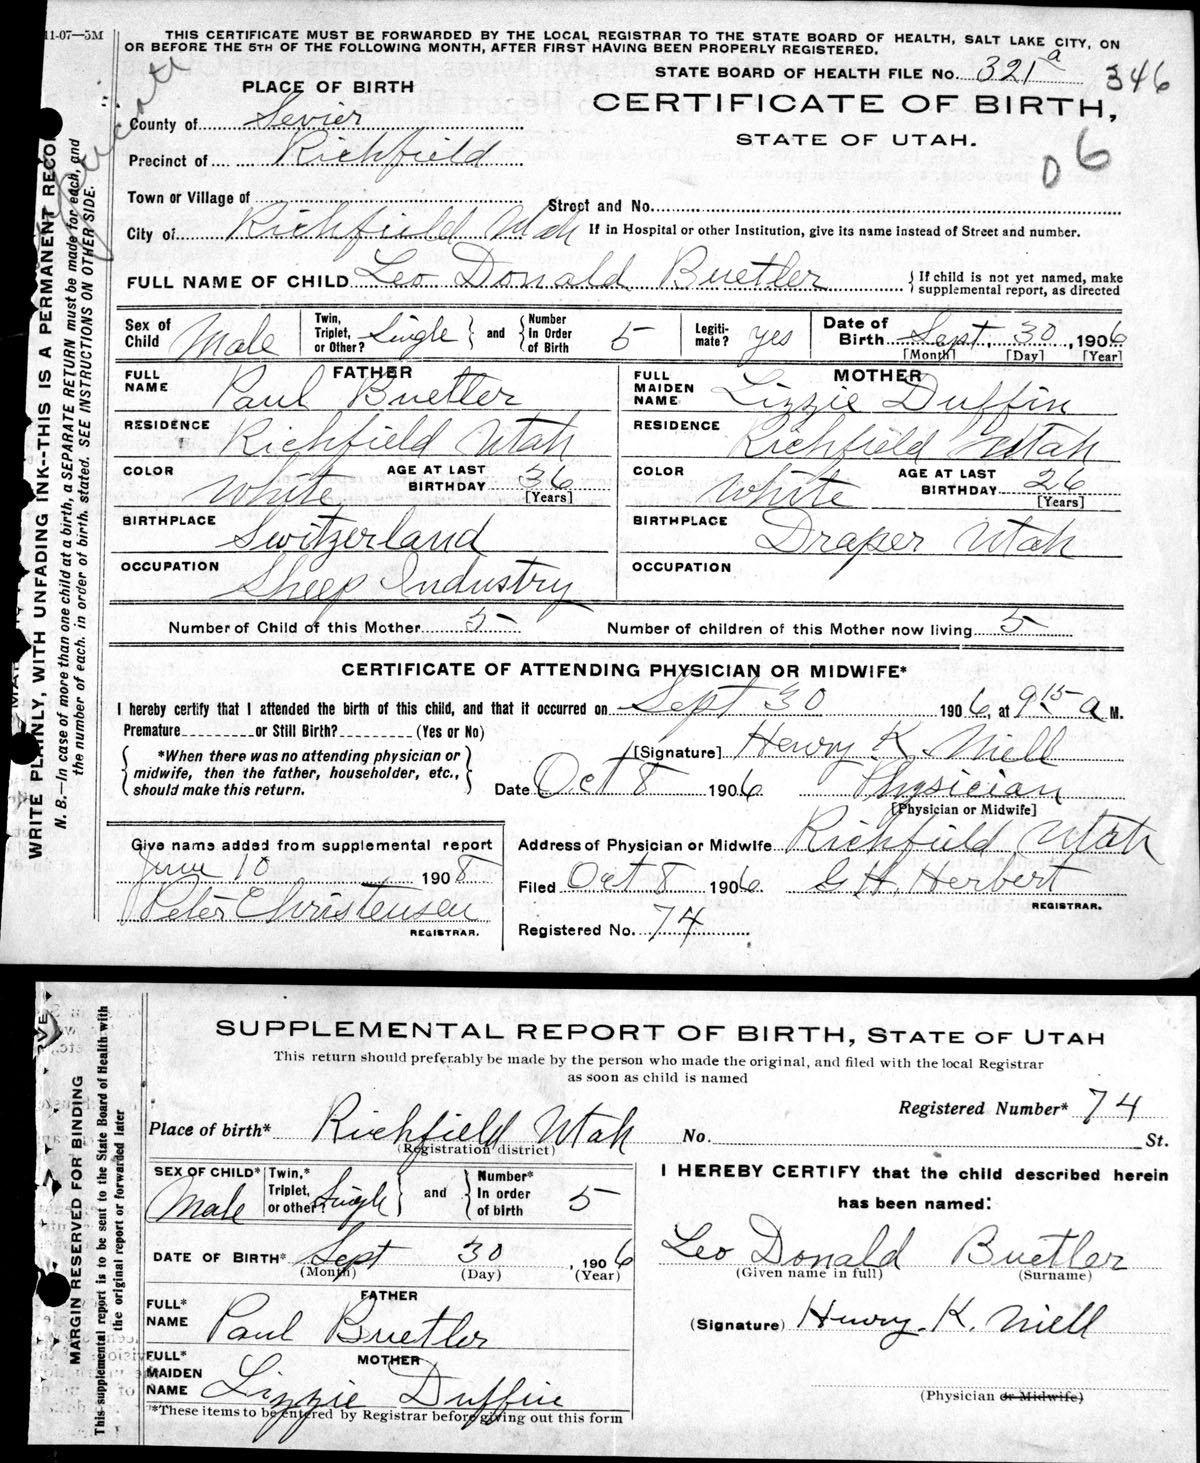 11-07—5M
THIS CERTIFICATE MUST BE FORWARDED BY THE LOCAL REGISTRAR TO THE STATE BOARD OF HEALTH, SALT LAKE CITY, ON
OR BEFORE THE 5TH OF THE FOLLOWING MONTH, AFTER FIRST HAVING BEEN PROPERLY REGISTERED.
STATE BOARD OF HEALTH FILE No. 321a 346
PLACE OF BIRTH
CERTIFICATE OF BIRTH,
STATE OF UTAH.
06
County of Sevier
Precinct of Richfield
Town or Village of
Street and No.
City of Richfield Utah
If in Hospital or other Institution, give its name instead of Street and number.
FULL NAME OF CHILD Leo Donald Buetler
{ If child is not yet named, make
supplemental report, as directed
Sex of Child Male
Twin, Triplet, or Other? Single } and { Number in Order of Birth 5
Legiti-mate? yes
Date of Birth Sept. 30, 1906
[Month] [Day] [Year]
FATHER
FULL NAME Paul Buetler
MOTHER
FULL MAIDEN NAME Lizzie Duffin
RESIDENCE Richfield Utah
RESIDENCE Richfield Utah
COLOR White AGE AT LAST BIRTHDAY 36 [Years]
COLOR White AGE AT LAST BIRTHDAY 26 [Years]
BIRTHPLACE Switzerland
BIRTHPLACE Draper Utah
OCCUPATION Sheep Industry
OCCUPATION
Number of Child of this Mother 5 Number of children of this Mother now living 5
CERTIFICATE OF ATTENDING PHYSICIAN OR MIDWIFE*
I hereby certify that I attended the birth of this child, and that it occurred on Sept 30 1906, at 9 15 a M.
Premature or Still Birth? (Yes or No)
{ *When there was no attending physician or
midwife, then the father, householder, etc.,
should make this return. }
[Signature] Henry K. Niell
Date Oct 8 1906 Physician
[Physician or Midwife]
Give name added from supplemental report
June 10 1908
Peter Christensen
REGISTRAR.
Address of Physician or Midwife Richfield, Utah
Filed Oct 8 1906 G H. Herbert
REGISTRAR.
Registered No. 74
WRITE PLAINLY, WITH UNFADING INK--THIS IS A PERMANENT RECO
N. B.—In case of more than one child at a birth, a SEPARATE RETURN must be made for each, and
the number of each. in order of birth. stated. SEE INSTRUCTIONS ON OTHER SIDE.
SUPPLEMENTAL REPORT OF BIRTH, STATE OF UTAH
This return should preferably be made by the person who made the original, and filed with the local Registrar
as soon as child is named
Registered Number* 74
Place of birth* Richfield Utah No. St.
(Registration district)
SEX OF CHILD* Male
Twin,* Triplet, or other? Single } and { Number* In order of birth 5
I HEREBY CERTIFY that the child described herein
has been named:
DATE OF BIRTH* Sept 30, 1906
(Month) (Day) (Year)
Leo Donald Buetler
(Given name in full) (Surname)
FATHER
FULL* NAME Paul Buetler
(Signature) Henry. K. Niell
MOTHER
FULL* MAIDEN NAME Lizzie Duffin
(Physician or Midwife)
*These items to be entered by Registrar before giving out this form
MARGIN RESERVED FOR BINDING
This supplemental report is to be sent to the State Board of Health with
the original report or forwarded later